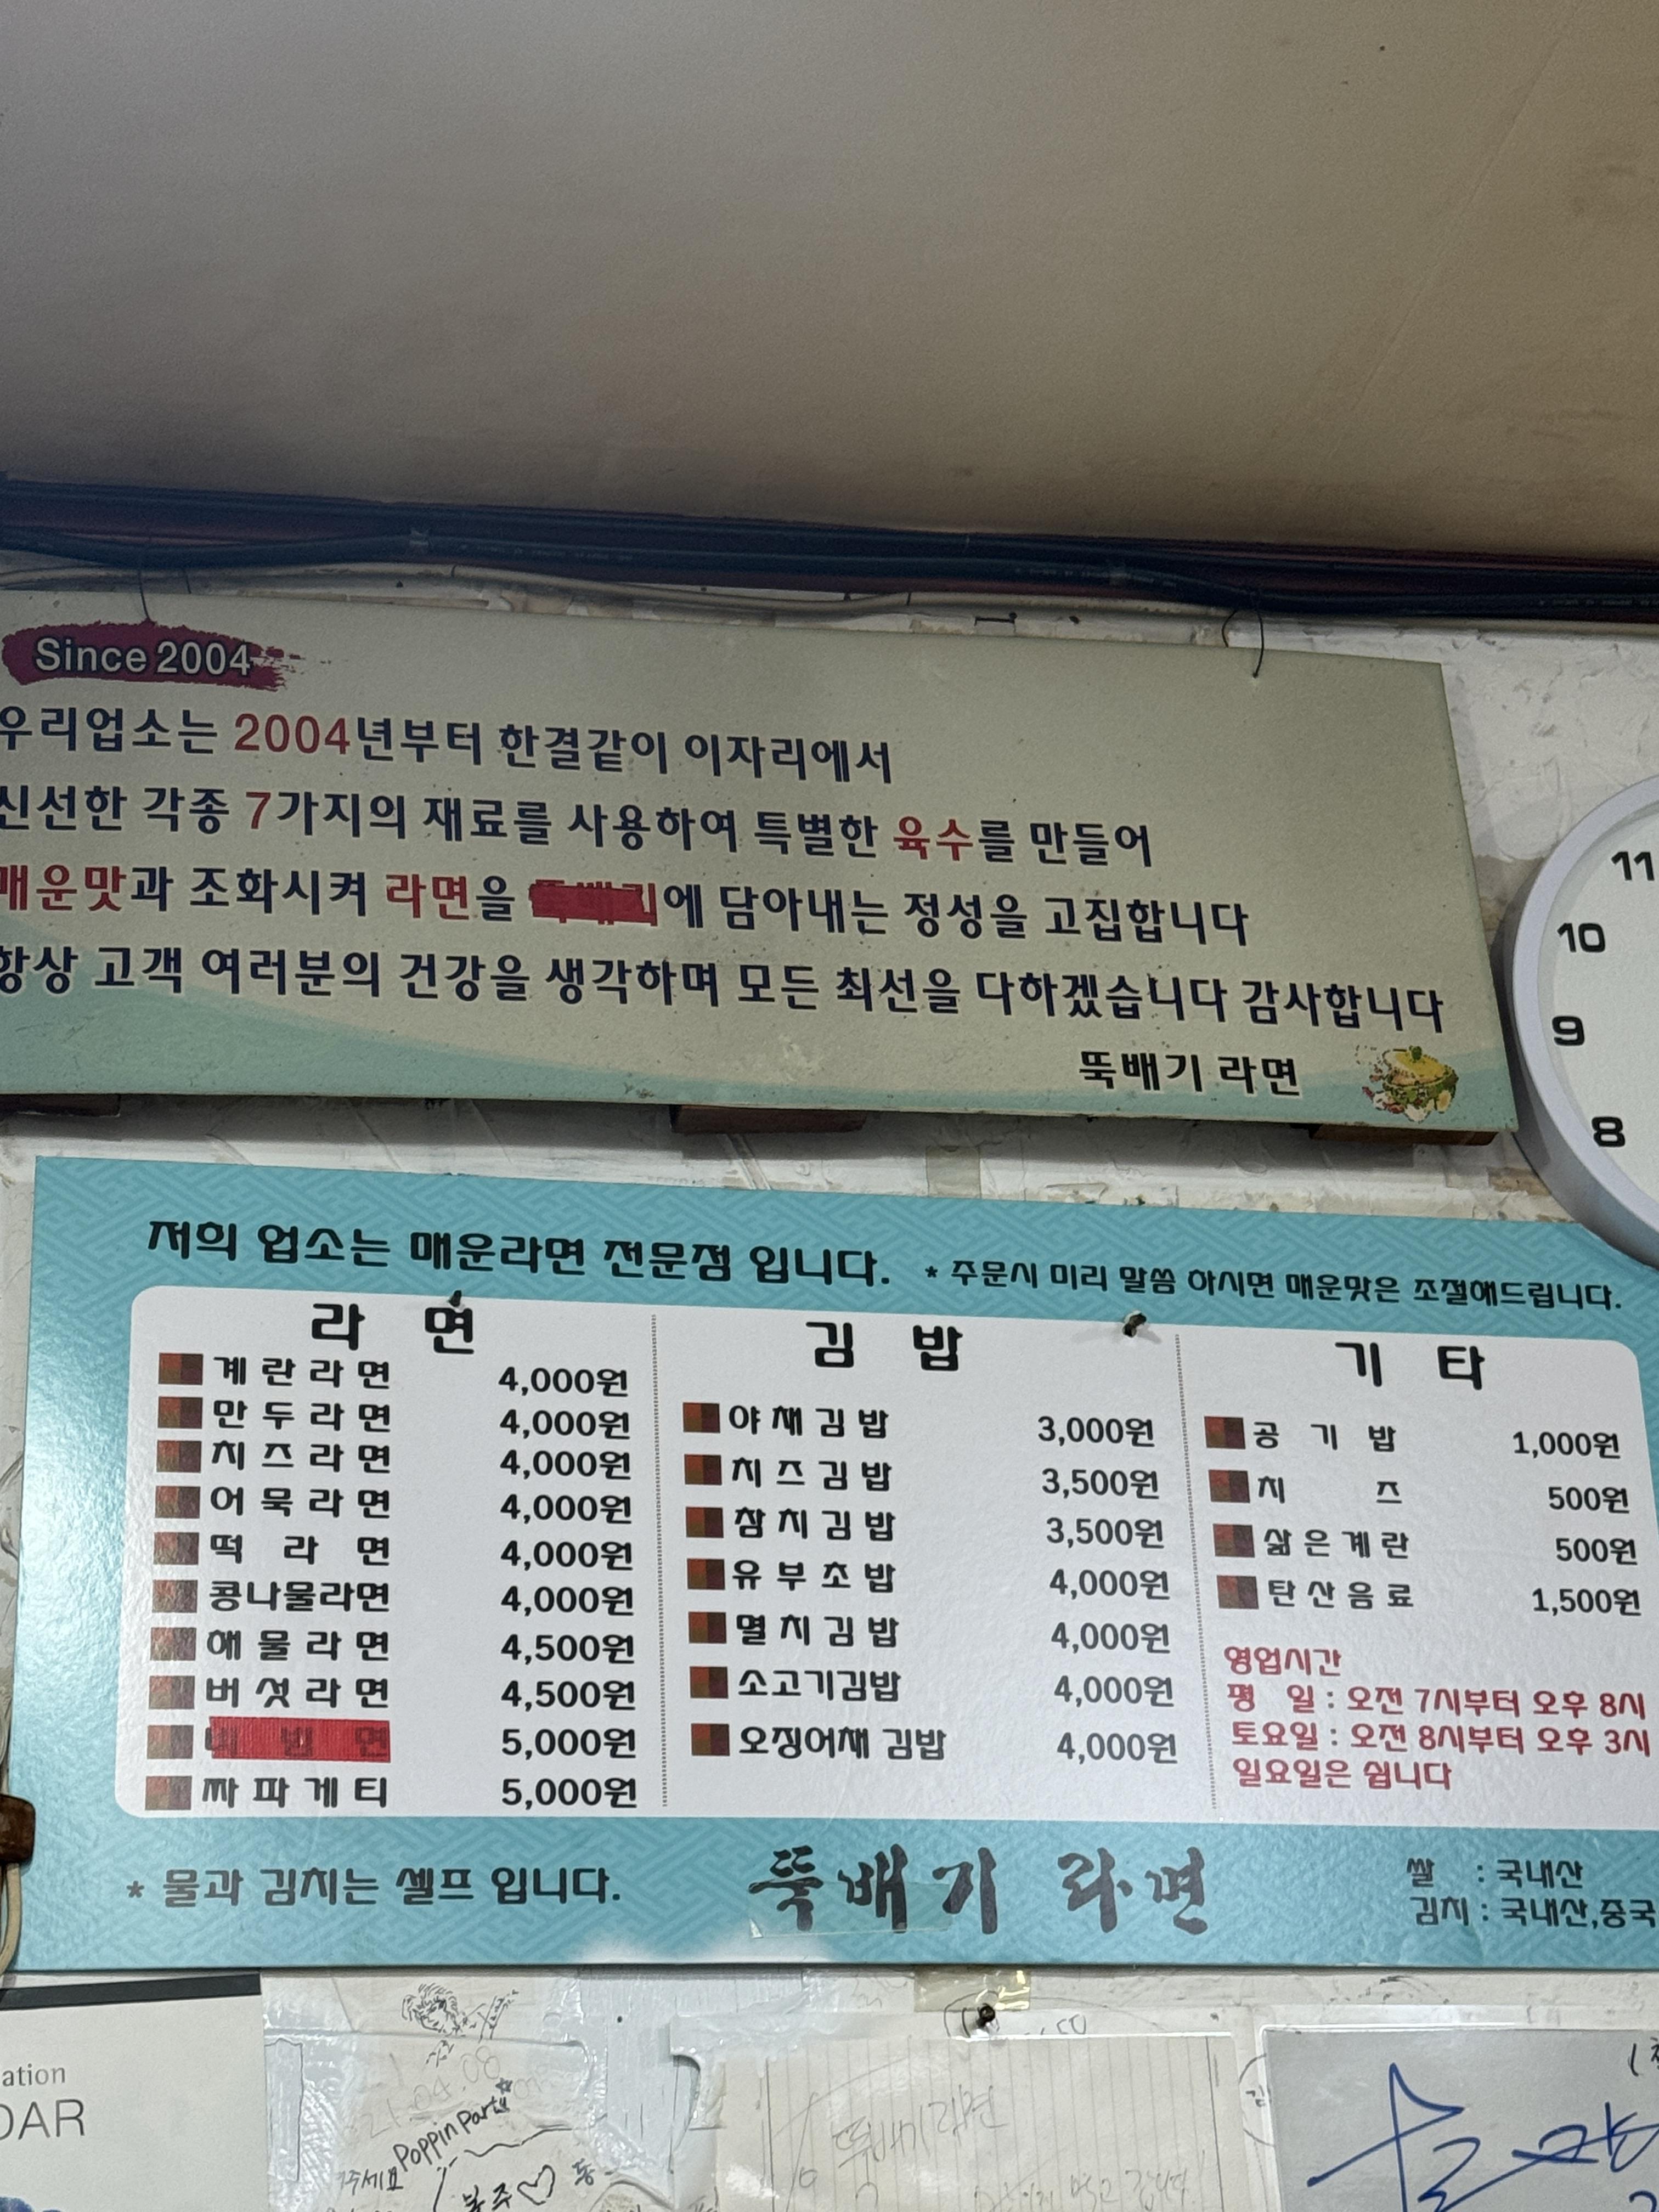 Since 2004
우리업소는 2004년부터 한결같이 이자리에서
신선한 각종 7가지의 재료를 사용하여 특별한 육수를 만들어
매운맛과 조화시켜 라면을 뚝배기에 담아내는 정성을 고집합니다
항상 고객 여러분의 건강을 생각하며 모든 최선을 다하겠습니다 감사합니다
뚝배기 라면
11
10
9
8
저희 업소는 매운라면 전문점 입니다. * 주문시 미리 말씀 하시면 매운맛은 조절해드립니다.
라 면
계란라면 4,000원
만두라면 4,000원
치즈라면 4,000원
어묵라면 4,000원
떡 라 면 4,000원
콩나물라면 4,000원
해물라면 4,500원
버섯라면 4,500원
비 빔 면 5,000원
짜파게티 5,000원
김 밥
야채김밥 3,000원
치즈김밥 3,500원
참치김밥 3,500원
유부초밥 4,000원
멸치김밥 4,000원
소고기김밥 4,000원
오징어채 김밥 4,000원
기 타
공 기 밥 1,000원
치 즈 500원
삶은계란 500원
탄산음료 1,500원
영업시간
평 일 : 오전 7시부터 오후 8시
토요일 : 오전 8시부터 오후 3시
일요일은 쉽니다
* 물과 김치는 셀프 입니다.
뚝배기 라면
쌀 : 국내산
김치 : 국내산,중국
ation
DAR
21.04.08
Poppin Party
뚝배기라면